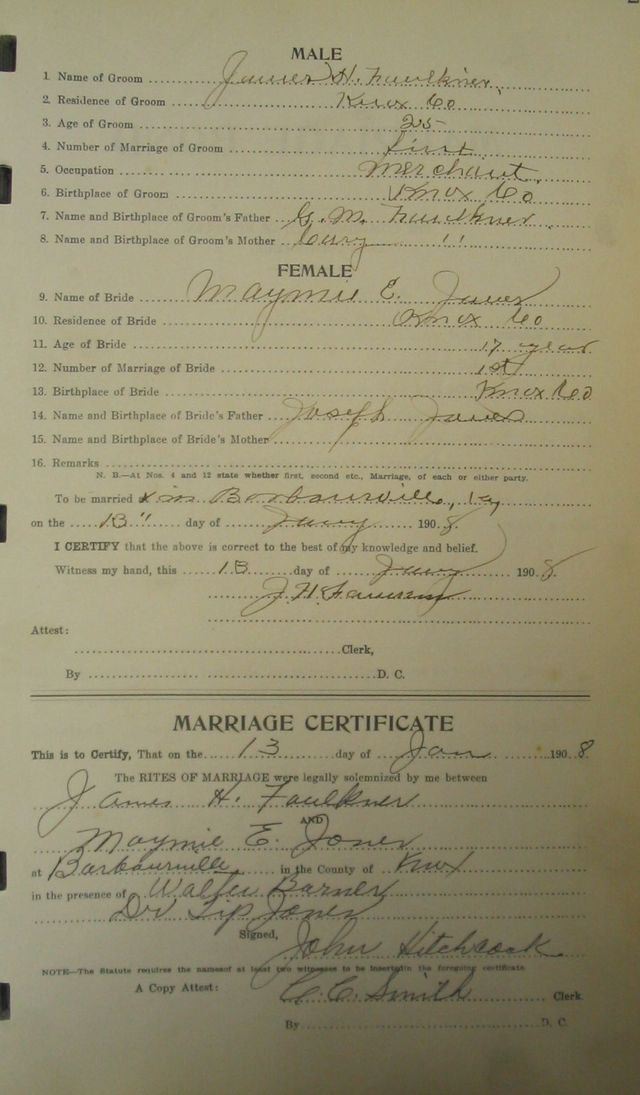 MALE
1. Name of Groom James H. Faulkner
2. Residence of Groom Knox Co
3. Age of Groom 25
4. Number of Marriage of Groom first
5. Occupation Merchant
6. Birthplace of Groom Knox Co
7. Name and Birthplace of Groom's Father G. M. Faulkner
8. Name and Birthplace of Groom's Mother "
FEMALE
9. Name of Bride Maymie E. Jones
10. Residence of Bride Knox Co
11. Age of Bride 17 year
12. Number of Marriage of Bride 1st
13. Birthplace of Bride Knox Co
14. Name and Birthplace of Bride's Father Joseph Jones
15. Name and Birthplace of Bride's Mother
16. Remarks
N. B.—At Nos. 4 and 12 state whether first, second etc., Marriage, of each or either party.
To be married in Barbourville, Ky
on the 13" day of Jany 1908
I CERTIFY that the above is correct to the best of my knowledge and belief.
Witness my hand, this 13 day of Jany 1908.
J. H. Faulkner
Attest:
Clerk,
By D. C.
MARRIAGE CERTIFICATE
This is to Certify, That on the 13 day of Jan 1908
The RITES OF MARRIAGE were legally solemnized by me between
James H. Faulkner
AND
Maymie E. Jones
at Barbourville in the County of Knox
in the presence of Walter Barner
Dr Tip Jones
Signed, John Hitchcock
NOTE—The Statute requires the names of at least two witnesses to be inserted in the foregoing certificate
A Copy Attest: C. C. Smith Clerk
By D. C.